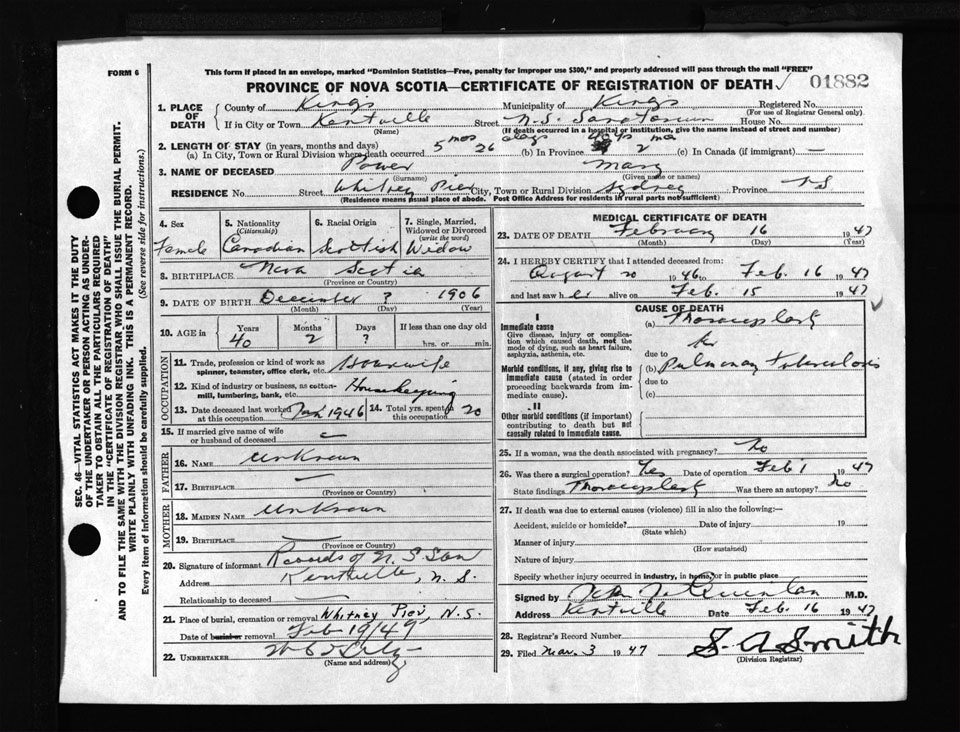 FORM 6
This form if placed in an envelope, marked "Dominion Statistics—Free, penalty for improper use $300," and properly addressed will pass through the mail "FREE"
PROVINCE OF NOVA SCOTIA—CERTIFICATE OF REGISTRATION OF DEATH 01882
1. PLACE OF DEATH
County of Kings Municipality of Kings Registered No.
(For use of Registrar General only)
If in City or Town Kentville Street N.S. Sanatorium House No.
(Name) (If death occurred in a hospital or institution, give the name instead of street and number)
2. LENGTH OF STAY (in years, months and days)
(a) In City, Town or Rural Division where death occurred 5 mos 26 days (b) In Province 40 yrs 2 mo (c) In Canada (if immigrant) —
3. NAME OF DECEASED Power Mary
(Surname) (Given name or names)
RESIDENCE No. Street Whitney Pier City, Town or Rural Division Sydney Province N S
(Residence means usual place of abode. Post Office Address for residents in rural parts not sufficient)
4. Sex Female
5. Nationality (Citizenship) Canadian
6. Racial Origin Scottish
7. Single, Married, Widowed or Divorced (write the word) Widow
8. BIRTHPLACE Nova Scotia
(Province or Country)
9. DATE OF BIRTH December ? 1906
(Month) (Day) (Year)
10. AGE in Years 40 Months 2 Days ? If less than one day old hrs. or min.
OCCUPATION
11. Trade, profession or kind of work as spinner, teamster, office clerk, etc. Housewife
12. Kind of industry or business, as cotton-mill, lumbering, bank, etc. Housekeeping
13. Date deceased last worked at this occupation Jan 1946 14. Total yrs. spent in this occupation 20
15. If married give name of wife or husband of deceased —
FATHER
16. NAME Unknown
17. BIRTHPLACE —
(Province or Country)
MOTHER
18. MAIDEN NAME Unknown
19. BIRTHPLACE —
(Province or Country)
20. Signature of informant Records of N. S San
Address Kentville, N. S.
Relationship to deceased —
21. Place of burial, cremation or removal Whitney Pier, N.S.
Date of burial or removal Feb 19/47
22. UNDERTAKER
(Name and address)
MEDICAL CERTIFICATE OF DEATH
23. DATE OF DEATH February 16 1947
(Month) (Day) (Year)
24. I HEREBY CERTIFY that I attended deceased from:
August 20 1946 to Feb. 16 1947
and last saw her alive on Feb. 15 1947
CAUSE OF DEATH
I
Immediate cause
Give disease, injury or complication which caused death, not the mode of dying, such as heart failure, asphyxia, asthenia, etc.
(a) Thoracoplasty for
due to
Morbid conditions, if any, giving rise to immediate cause (stated in order proceeding backwards from immediate cause).
(b) Pulmonary Tuberculosis
due to
(c)
II
Other morbid conditions (if important) contributing to death but not causally related to immediate cause.
25. If a woman, was the death associated with pregnancy? No
26. Was there a surgical operation? Yes Date of operation Feb 1 1947
State findings Thoracoplasty Was there an autopsy? No
27. If death was due to external causes (violence) fill in also the following:—
Accident, suicide or homicide? Date of injury 19
(State which)
Manner of injury
(How sustained)
Nature of injury
Specify whether injury occurred in industry, in home, or in public place
Signed by Quinlan M.D.
Address Kentville Date Feb. 16 1947
28. Registrar's Record Number
29. Filed Mar. 3 1947 S. A Smith
(Division Registrar)
SEC. 46—VITAL STATISTICS ACT MAKES IT THE DUTY
OF THE UNDERTAKER OR PERSON ACTING AS UNDER-
TAKER TO OBTAIN ALL THE PARTICULARS REQUIRED
IN THE "CERTIFICATE OF REGISTRATION OF DEATH" AND
TO FILE THE SAME WITH THE DIVISION REGISTRAR WHO SHALL ISSUE THE BURIAL PERMIT.
WRITE PLAINLY WITH UNFADING INK. THIS IS A PERMANENT RECORD.
Every item of information should be carefully supplied. (See reverse side for instructions.)